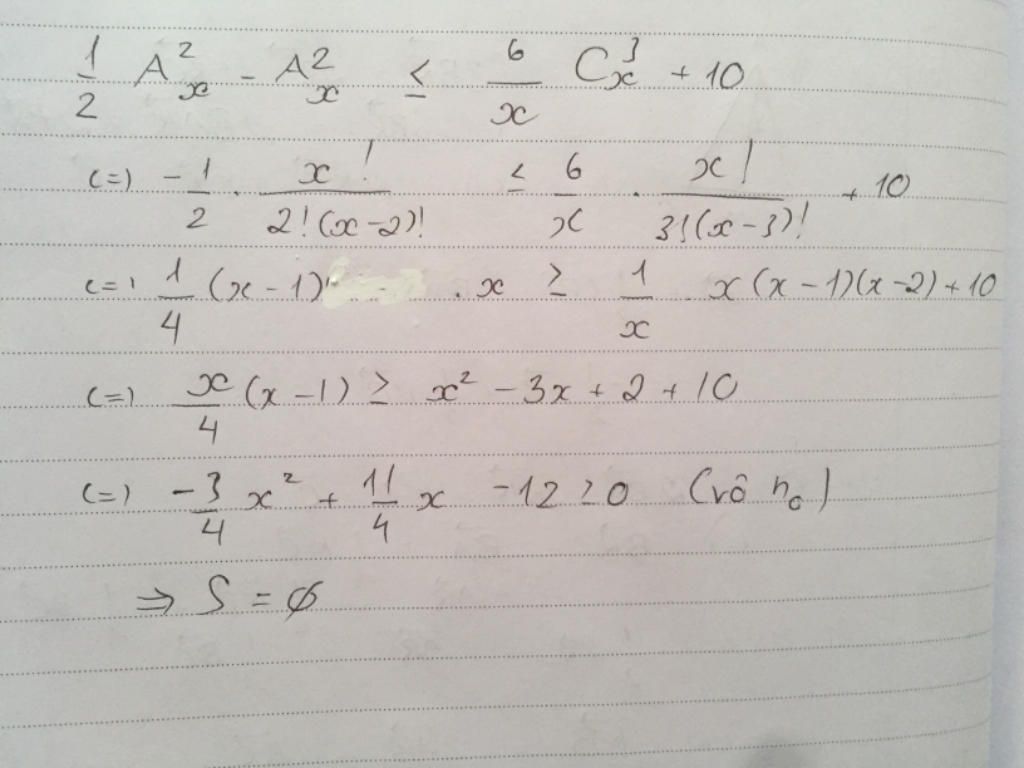 1/2 A²ₓ - A²ₓ ≤ 6/x C³ₓ + 10
(=) -1/2 . x!/2!(x-2)! ≤ 6/x . x!/3!(x-3)! + 10
(=) 1/4 (x-1) . x ≥ 1/x . x(x-1)(x-2)+10
(=) x/4 (x-1) ≥ x² - 3x + 2 + 10
(=) -3/4 x² + 11/4 x - 12 ≥ 0 (vô n₀)
⇒ S = ∅